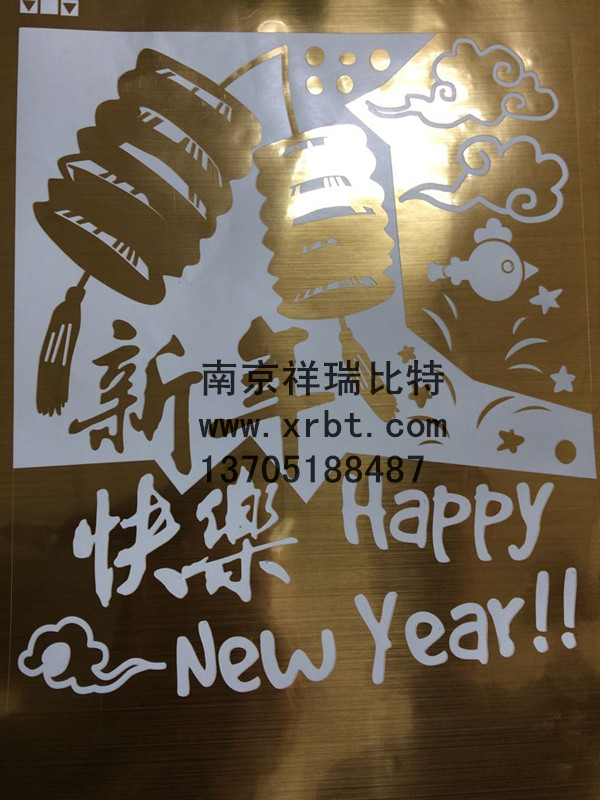 新年
南京祥瑞比特
www.xrbt.com
13705188487
快樂
Happy
New Year!!